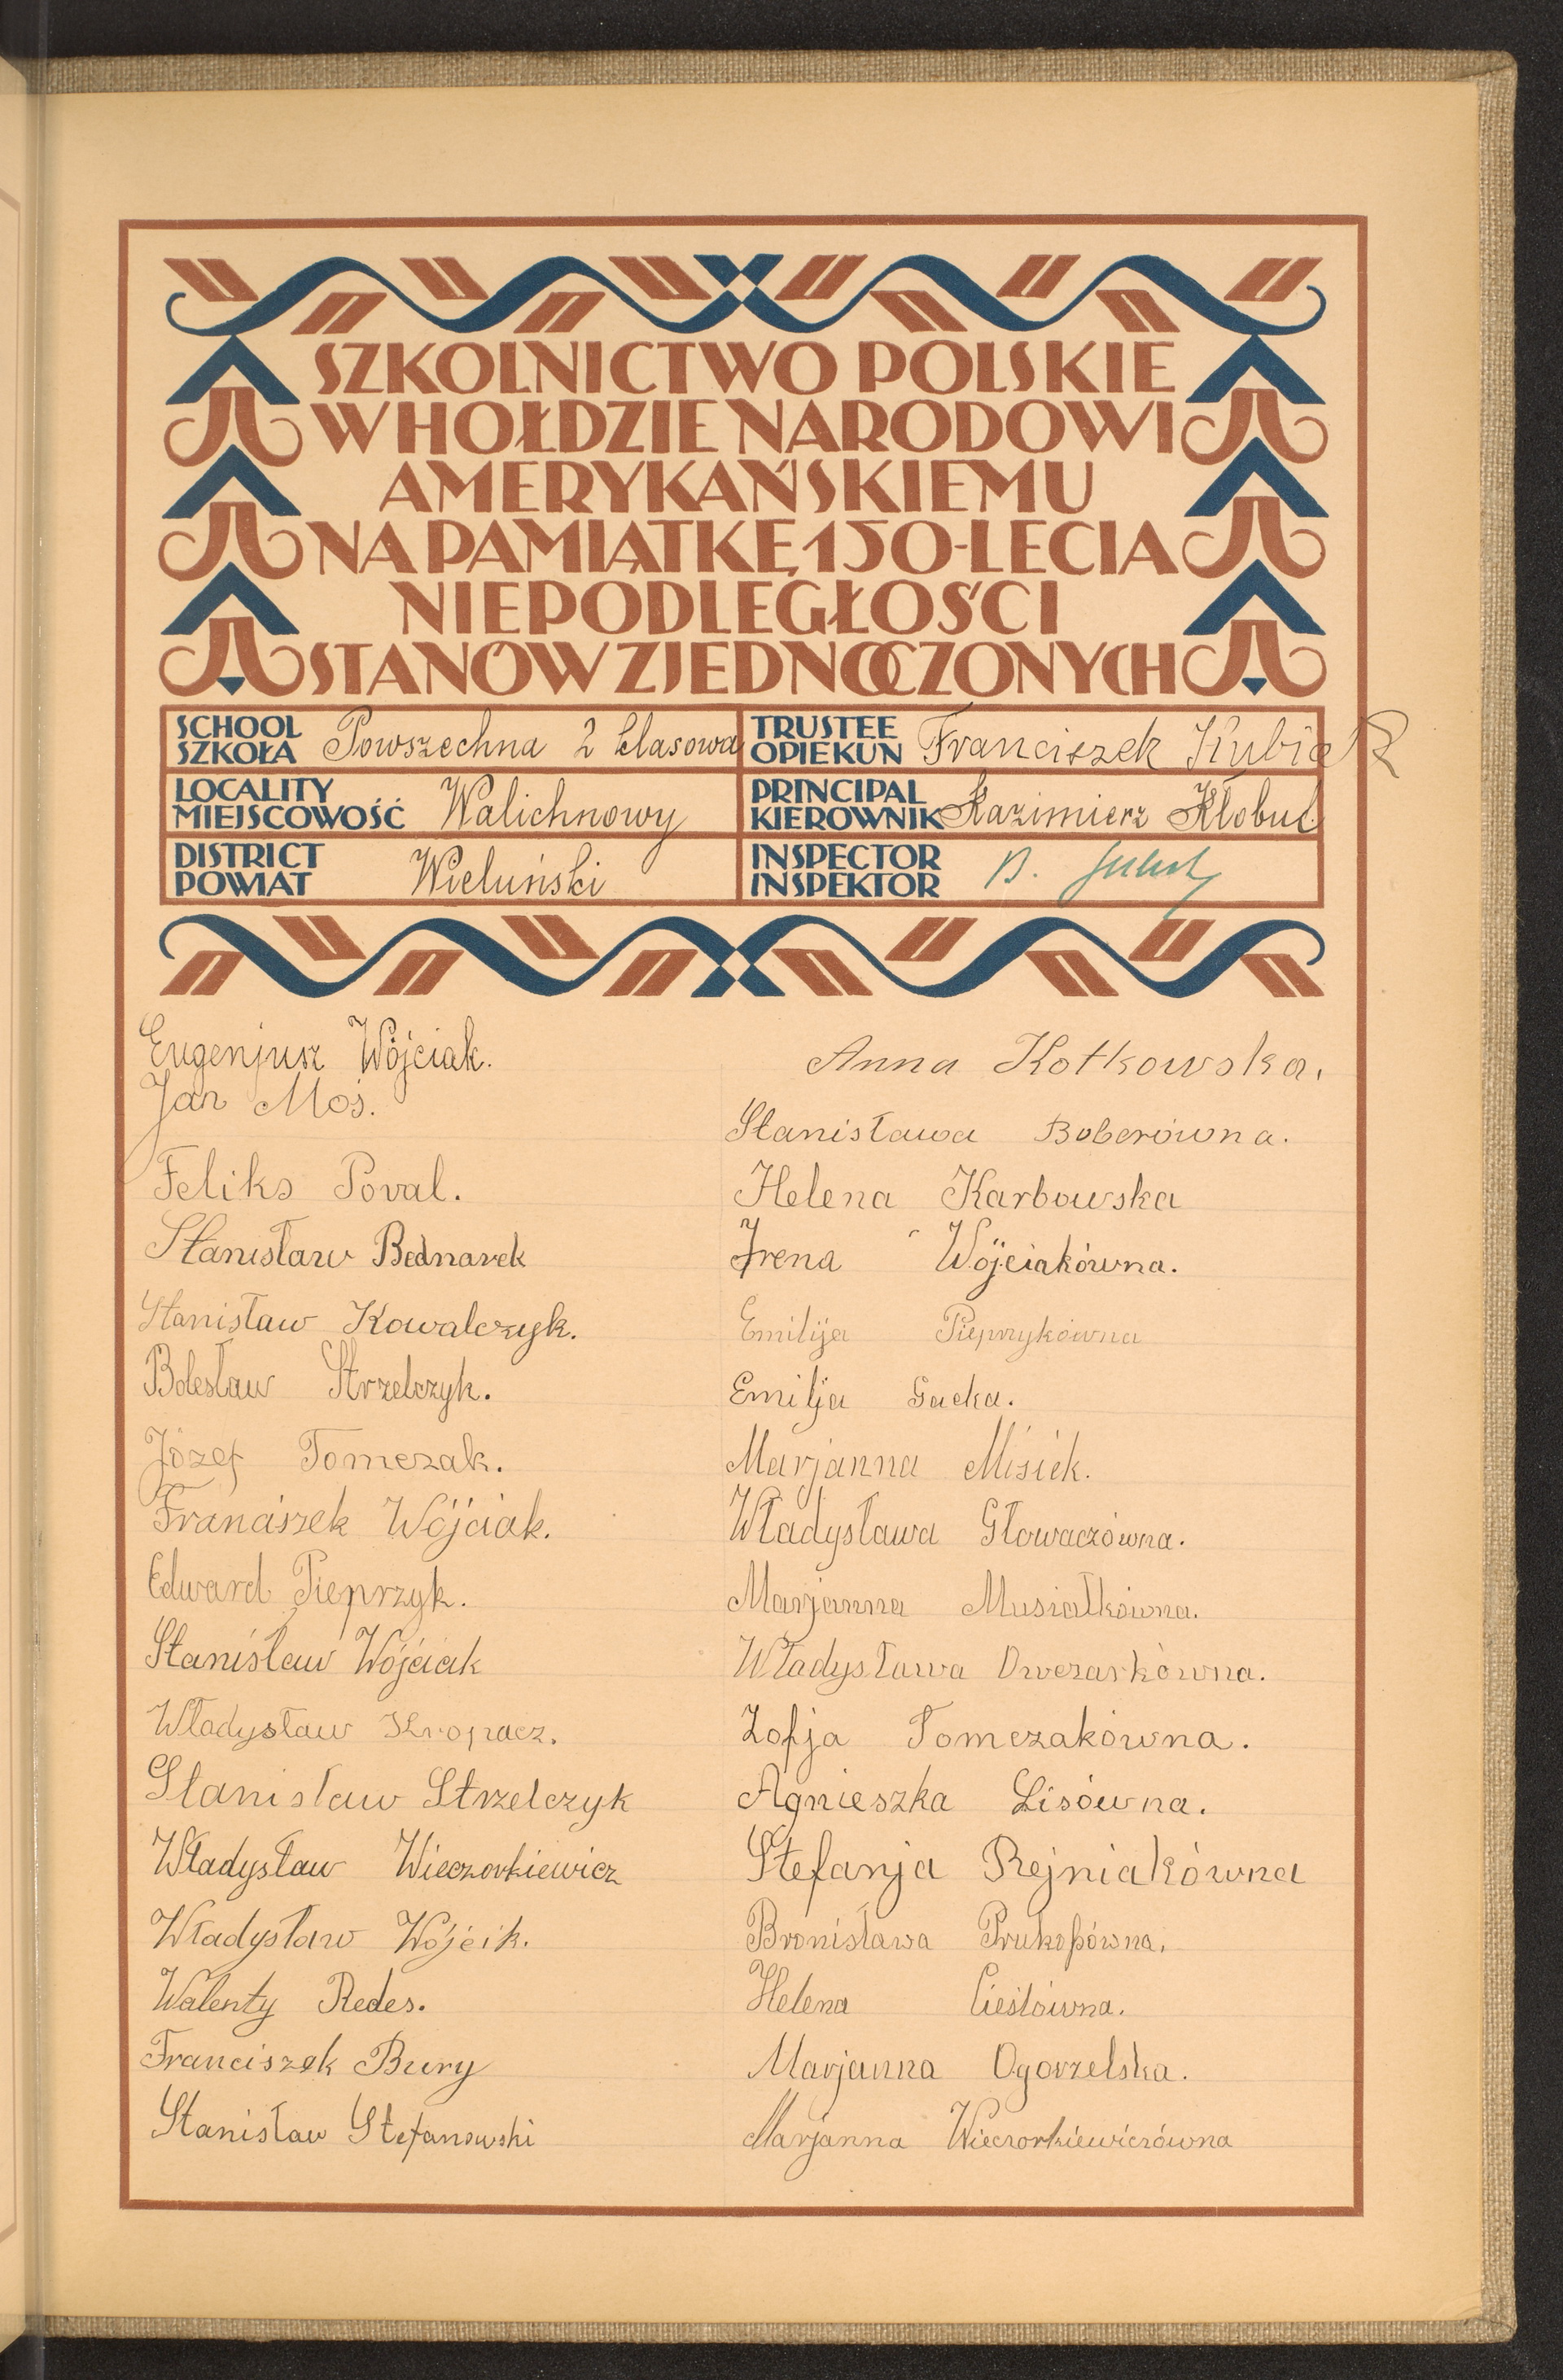 SZKOLNICTWO POLSKIE
W HOŁDZIE NARODOWI
AMERYKAŃSKIEMU
NA PAMIĄTKĘ 150-LECIA
NIEPODLEGŁOŚCI
STANÓW ZJEDNOCZONYCH
SCHOOL
SZKOŁA Powszechna 2 klasowa
TRUSTEE
OPIEKUN Franciszek Kubiak
LOCALITY
MIEJSCOWOŚĆ Walichnowy
PRINCIPAL
KIEROWNIK Kazimierz Kłobus
DISTRICT
POWIAT Wieluński
INSPECTOR
INSPEKTOR B.
Eugenjusz Wójciak.
Jan Moś.
Feliks Poval.
Stanisław Bednarek
Stanisław Kowalczyk.
Bolesław Strzelczyk.
Józef Tomczak.
Franciszek Wójciak.
Edward Pieprzyk.
Stanisław Wójciak
Władysław Kropacz.
Stanisław Strzelczyk
Władysław Wieczorkiewicz
Władysław Wójcik.
Walenty Redes.
Franciszek Bury
Stanisław Stefanowski
Anna Kotkowska.
Stanisława Boberówna.
Helena Karbowska
Irena Wójciakówna.
Emilija Pieprzykówna
Emilja Gacka.
Marjanna Misiek.
Władysława Głowaczówna.
Marjanna Musiałkówna.
Władysława Owczarkówna.
Zofja Tomczakówna.
Agnieszka Lisówna.
Stefanja Rejniakówna
Bronisława Prukopówna.
Helena Cieślówna.
Marjanna Ogorzelska.
Marjanna Wieczorkiewiczówna